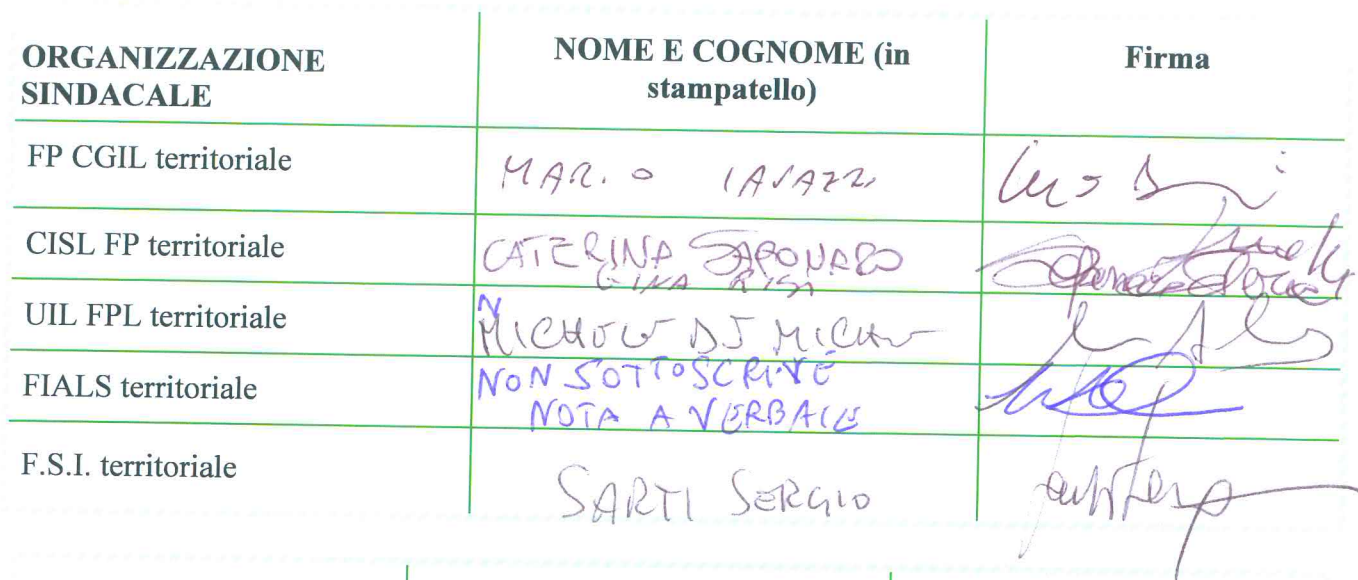 ORGANIZZAZIONE
SINDACALE
NOME E COGNOME (in
stampatello)
Firma
FP CGIL territoriale
MARIO IAVAZZI
CISL FP territoriale
CATERINA SAPONARO
GINA RISI
UIL FPL territoriale
FIALS territoriale
NON SOTTOSCRIVE
NOTA A VERBALE
F.S.I. territoriale
SARTI SERGIO